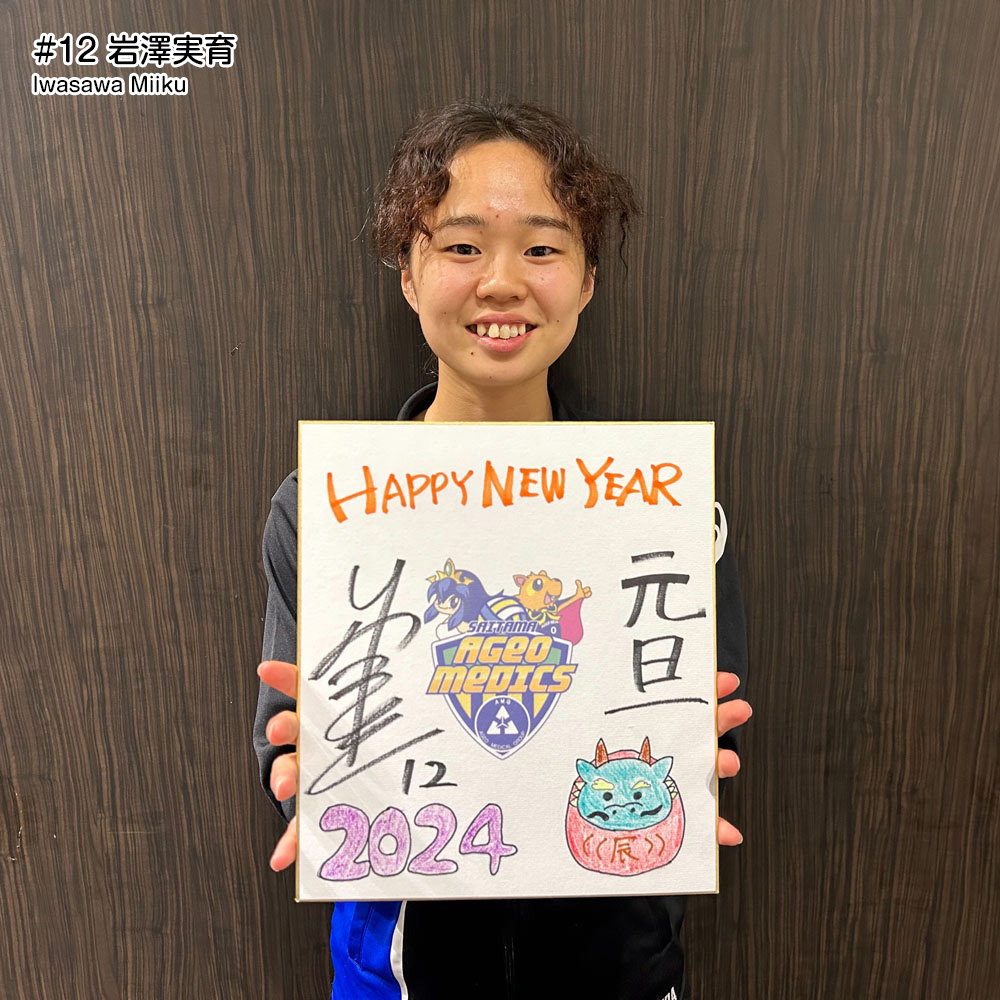 #12 岩澤実育
Iwasawa Miiku
HAPPY NEW YEAR
元旦
SAITAMA
AGEO
MEDICS
AMG
12
2024
辰